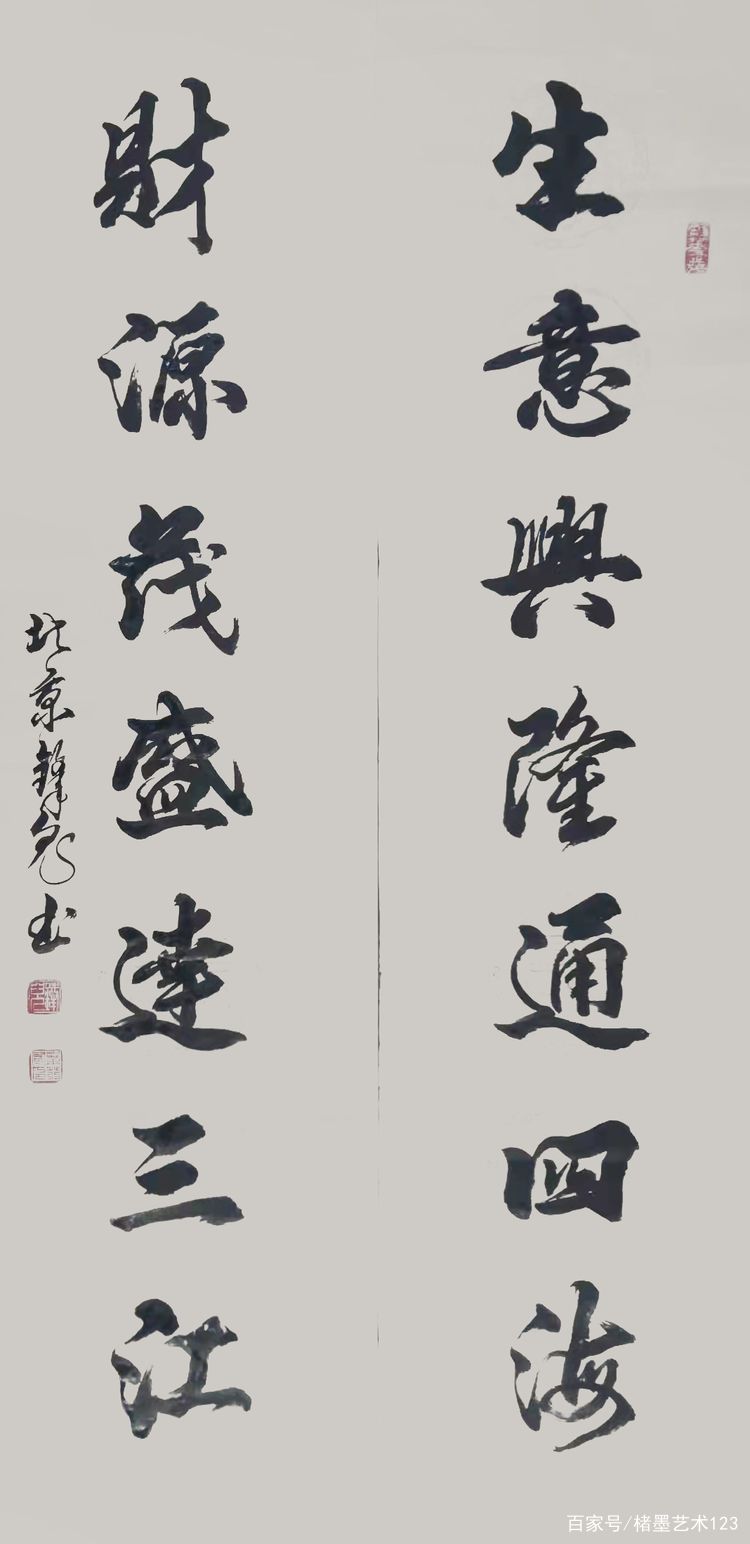 生意興隆通四海
財源茂盛達三江
北京鋒彪书
百家号/楮墨艺术123